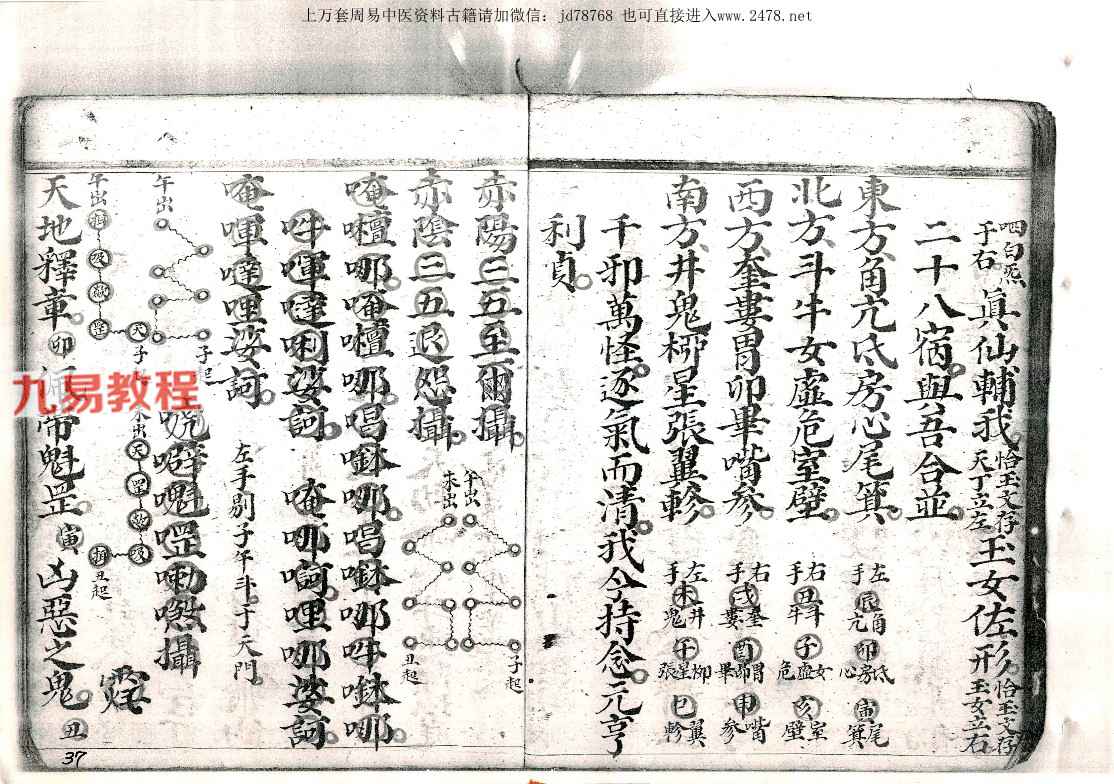 上万套周易中医资料古籍请加微信：jd78768 也可直接进入www.2478.net
真仙輔我 怡玉文存 天丁立左 玉女佐形 怡玉文存 玉女立右
于右
二十八宿與吾合並
東方角亢氐房心尾箕 左手 辰角亢 卯氐房心 寅尾箕
北方斗牛女虛危室壁 右手 丑斗牛 子女虛危 亥室壁
西方奎婁胃昴畢嘴參 右手 戌奎婁 酉胃昴畢 申嘴參
南方井鬼柳星張翼軫 左手 未井鬼 午柳星張 巳翼軫
千邪萬怪逐氣而清我今持念元亨
利貞
赤陽三五至爾攝
赤陰三五退怨攝
午出 未出 子起 丑起
唵檀哪唵檀哪唱鉢哪唱鉢哪吽鉢哪
吽㖇噠唎娑訶 唵哪訶哩哪娑訶
唵㖇噠哩娑訶 左手別子午斗于天門
魁罡 攝
午出 子起
午出 子起
未出 丑起
天地釋章 卯 佩帶魁罡 寅 凶惡之鬼 丑
九易教程
37